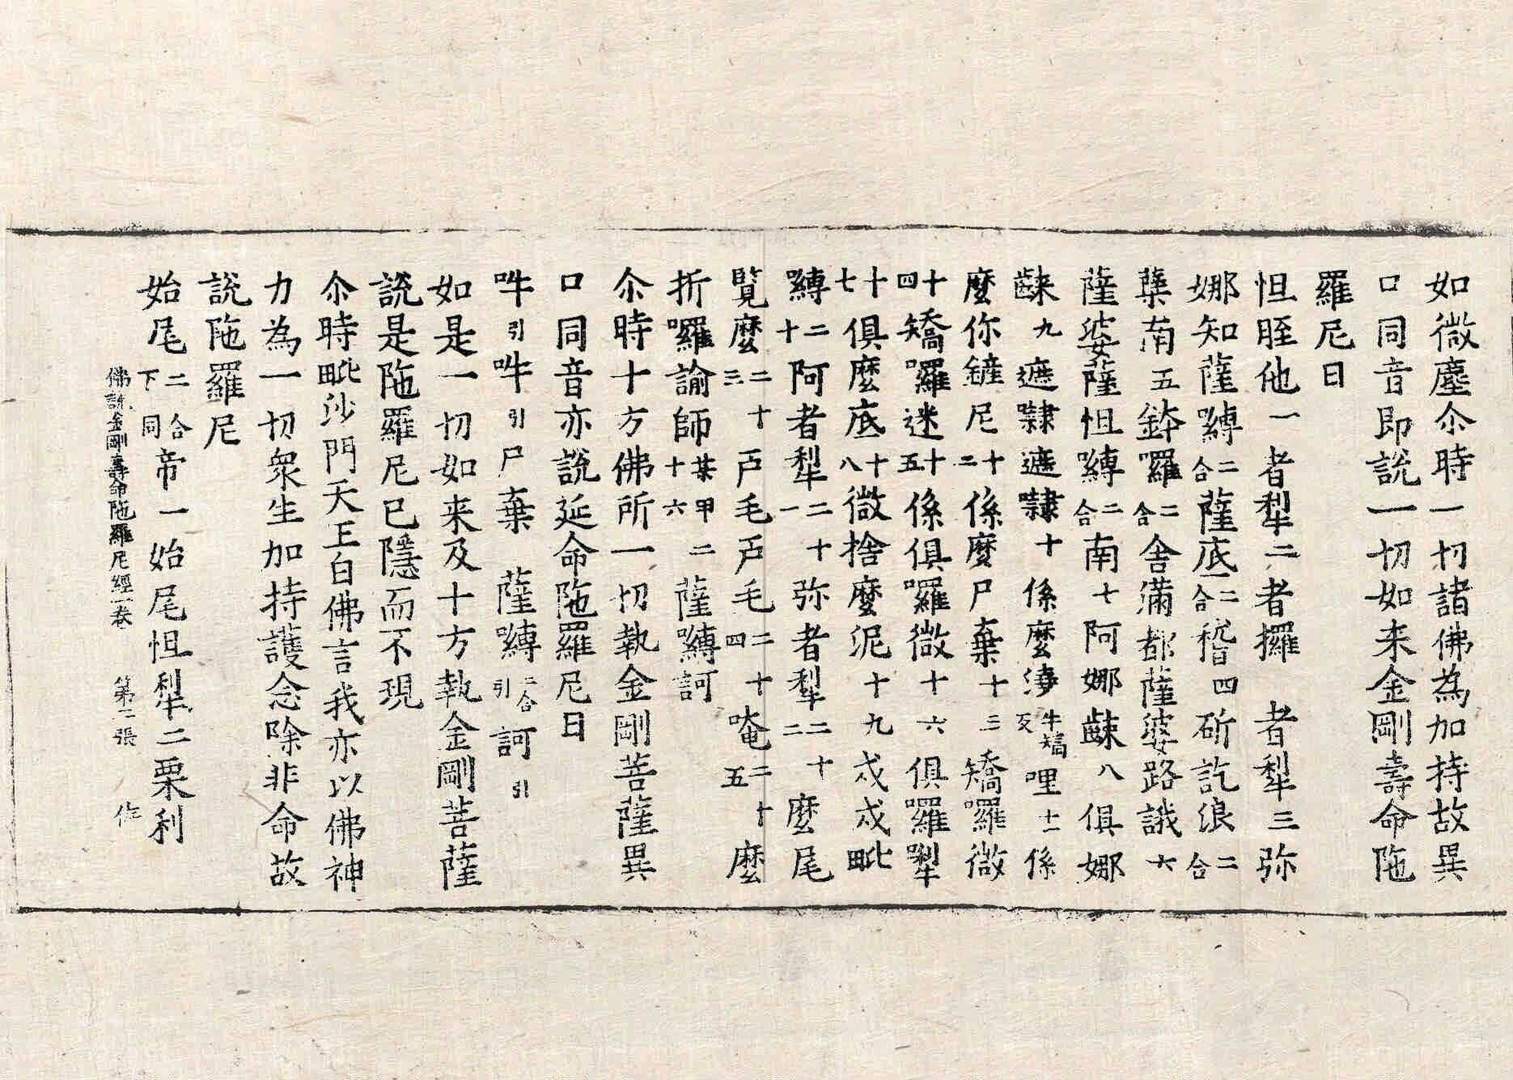 如微塵尒時一切諸佛為加持故異
口同音即說一切如来金剛壽命陁
羅尼曰
怛胵他一者犁二者攞者犁三弥
娜知薩嚩二合薩底二合稽四斫訖浪二合
蘖南五鉢囉二合舎滿都薩婆路誐六
薩婆薩怛嚩二合南七阿娜䟽八俱娜
䟽九遮隸遮隸十係麼哹牛矯反哩十一係
麼你鏟尼十二係麼尸棄十三矯羅微
十四矯羅迷十五係俱羅微十六俱羅犁
十七俱麼底十八微捨麼泥十九戍戍毗
嚩二十阿者犁二十一弥者犁二十二麼尾
覧麼二十三戸毛戸毛二十四唵二十五麼
折囉諭師葉甲二十六薩嚩訶
尒時十方佛所一切執金剛菩薩異
口同音亦說延命陁羅尼曰
吽引吽引尸棄薩嚩二合引訶引
如是一切如来及十方執金剛菩薩
說是陁羅尼已隱而不現
尒時毗沙門天王白佛言我亦以佛神
力為一切衆生加持護念除非命故
說陁羅尼
始尾二合下同帝一始尾怛犁二栗利
佛說金剛壽命陁羅尼經一卷 第二張 作